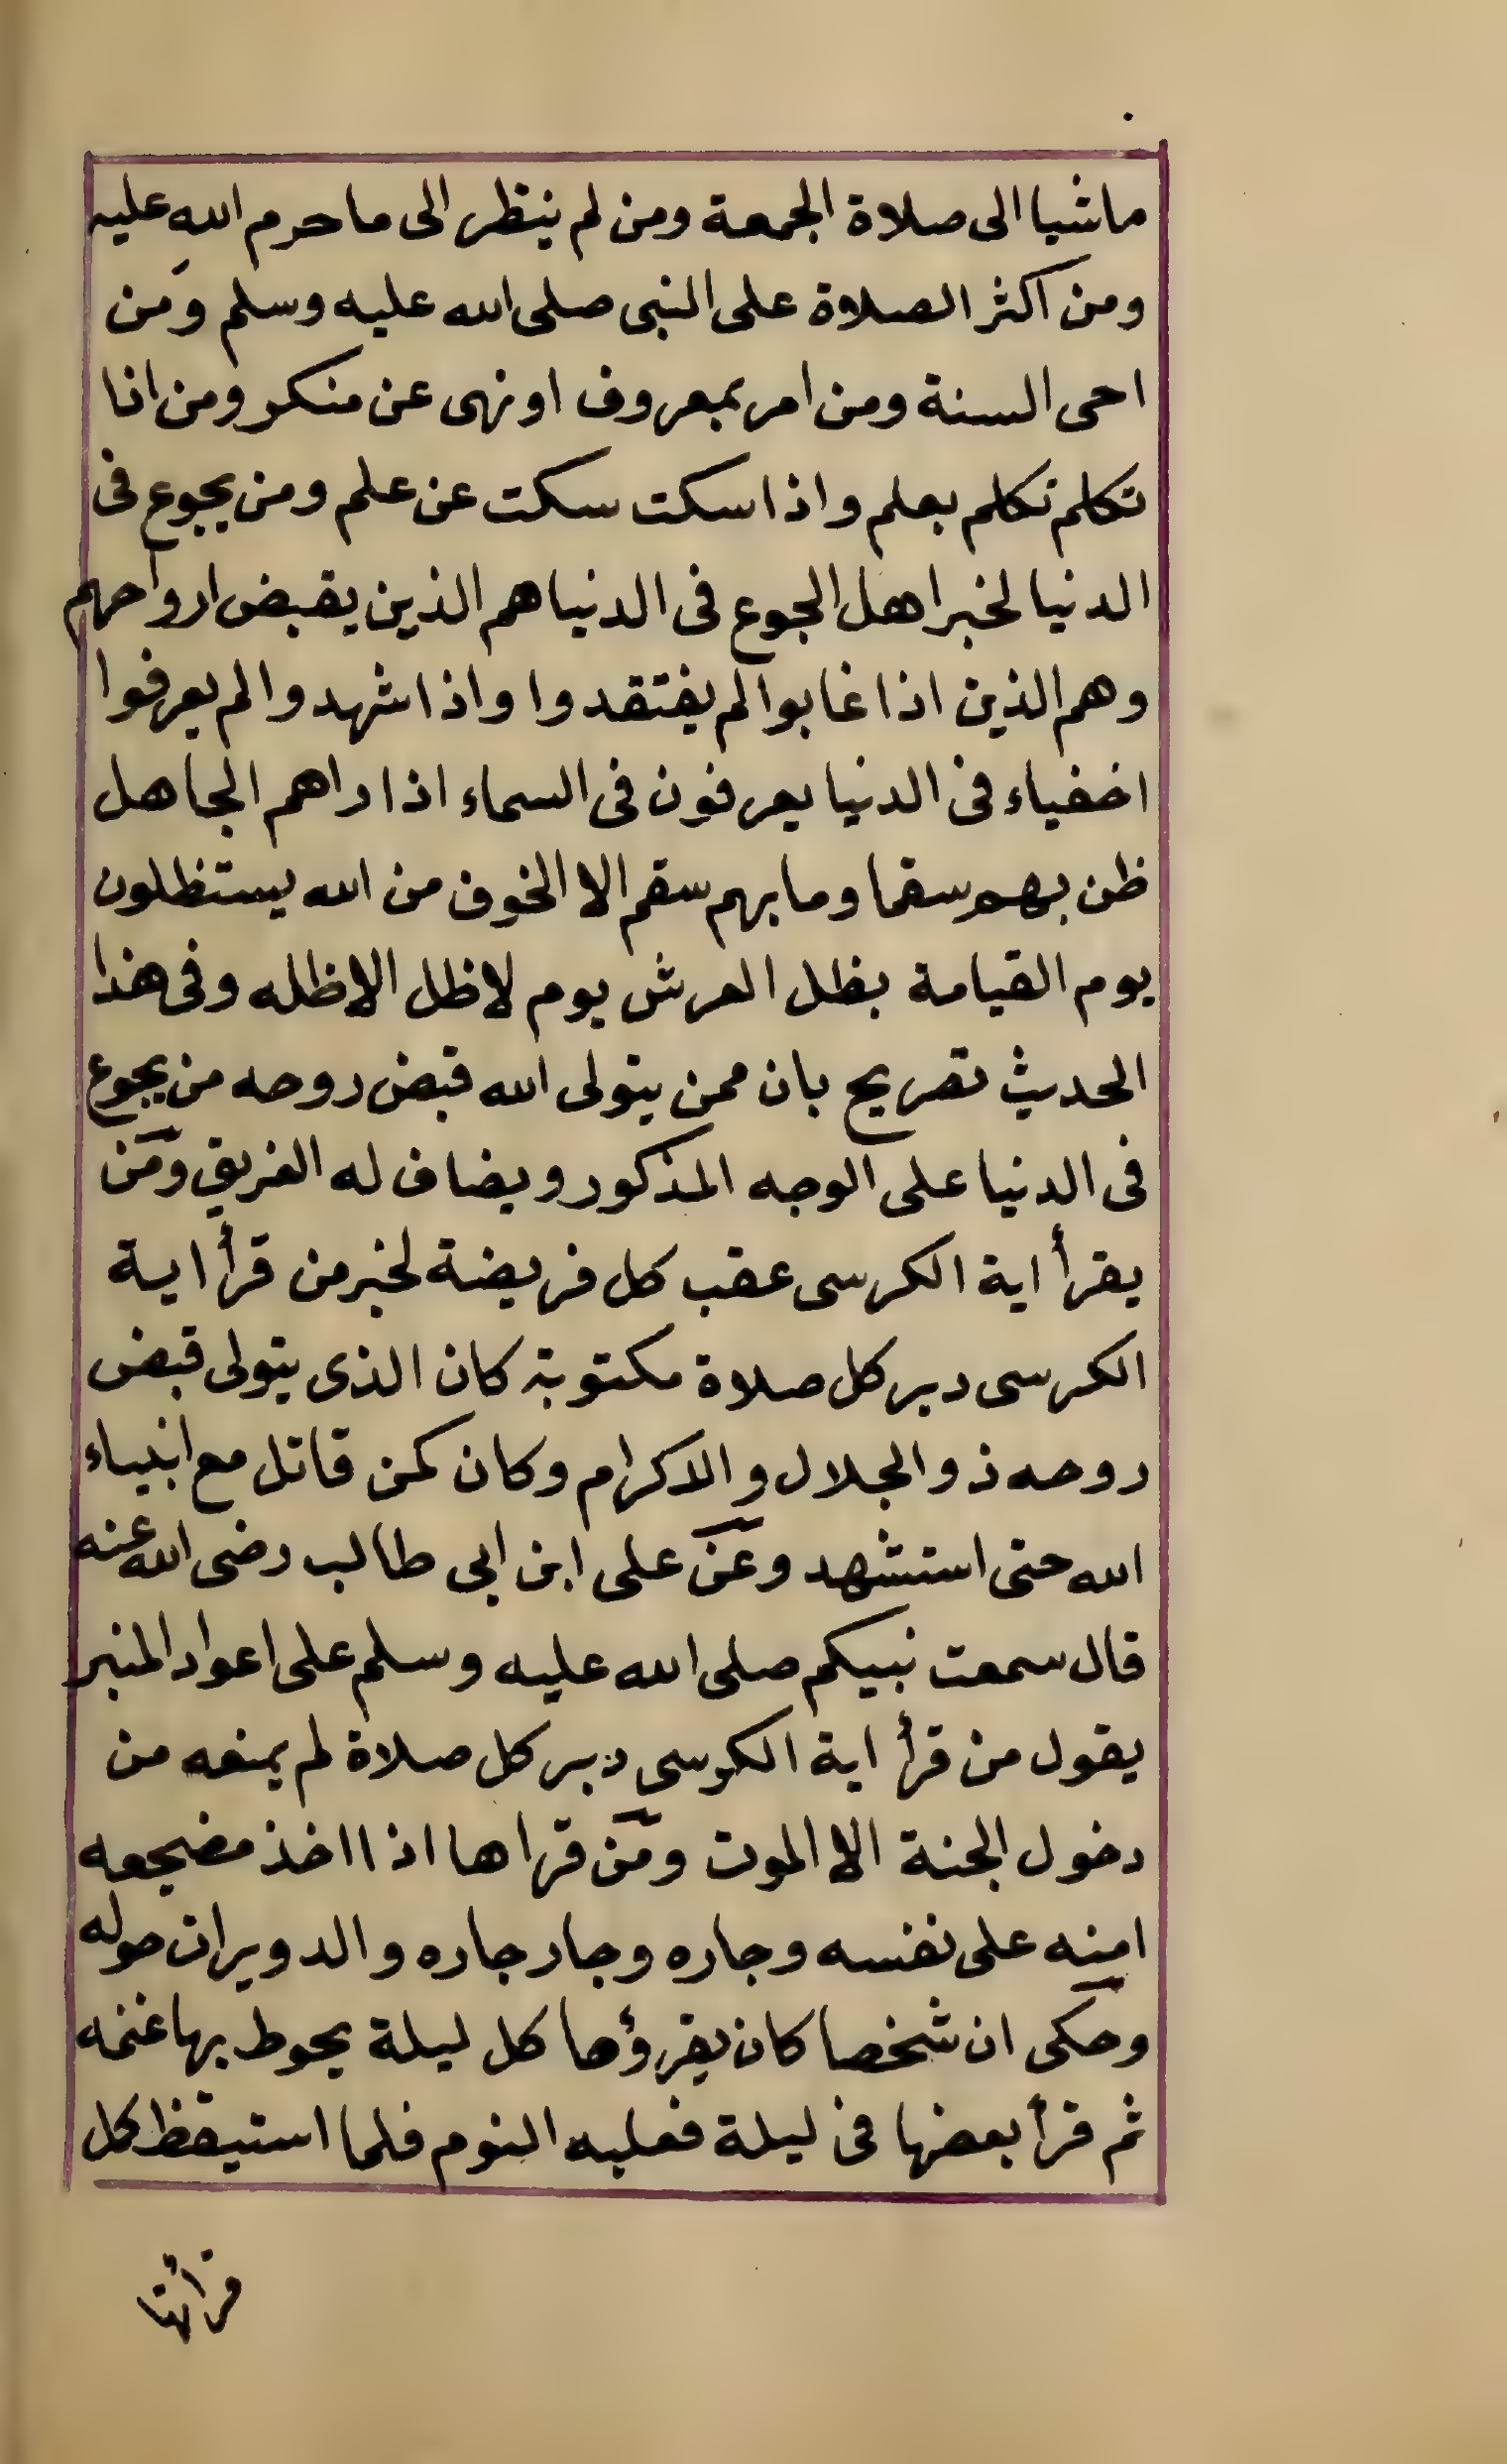 ماشيا الى صلاة الجمعة ومن لم ينظر الى ما حرم الله عليه
ومن اكثر الصلاة على النبى صلى الله عليه وسلم ومن
احى السنة ومن امر بمعروف او نهى عن منكر ومن اذا
تكلم تكلم بعلم واذا سكت سكت عن علم ومن يجوع فى
الدنيا لخبر اهل الجوع فى الدنيا هم الذين يقبض ارواحهم
وهم الذين اذا غابوا لم يفتقدوا واذا شهدوا لم يعرفوا
اخفياء فى الدنيا يعرفون فى السماء اذا راهم الجاهل
ظن بهم سقما وما بهم سقم الا الخوف من الله يستظلون
يوم القيامة بظل العرش يوم لا ظل الا ظله وفى هذا
الحديث تصريح بان ممن يتولى الله قبض روحه من يجوع
فى الدنيا على الوجه المذكور ويضاف له الغريق ومن
يقرأ اية الكرسى عقب كل فريضة لخبر من قرأ اية
الكرسى دبر كل صلاة مكتوبة كان الذى يتولى قبض
روحه ذو الجلال والاكرام وكان كمن قاتل مع انبياء
الله حتى استشهد وعن على ابن ابى طالب رضى الله عنه
قال سمعت نبيكم صلى الله عليه وسلم على اعواد المنبر
يقول من قرأ اية الكرسى دبر كل صلاة لم يمنعه من
دخول الجنة الا الموت ومن قراها اذا اخذ مضجعه
امنه على نفسه وجاره وجار جاره والدويرات حوله
وحكى ان شخصا كان يقرؤها كل ليلة يحوط بها غنمه
ثم قرأ بعضها فى ليلة فغلبه النوم فلما استيقظ كل
قرأتها